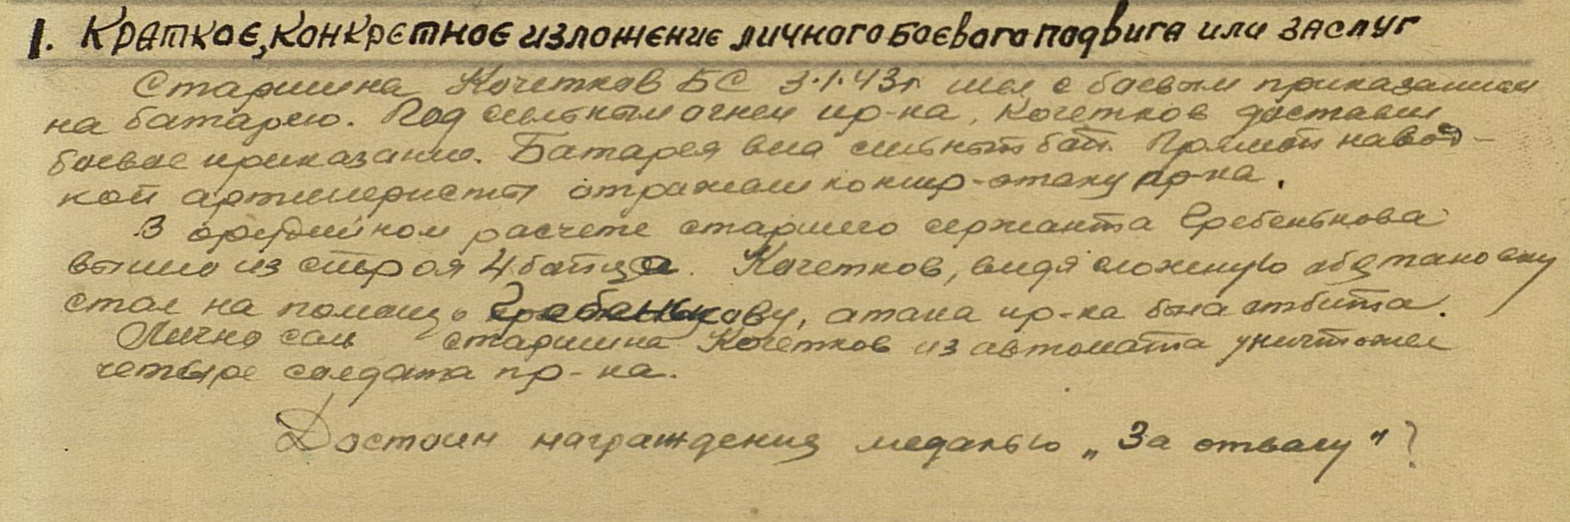 1. Краткое, конкретное изложение личного боевого подвига или заслуг
Старшина Кочетков БС 3.1.43г шел с боевым приказанием
на батарею. Под сильным огнем пр-ка, Кочетков доставил
боевое приказание. Батарея вела сильный бой. Прямой навод-
кой артиллеристы отражали контр-атаку пр-ка.
В орудийном расчете старшего сержанта Гребенькова
вышло из строя 4 бойца. Кочетков, видя сложную обстановку
стал на помощь Гребенькову, атака пр-ка была отбита.
Лично сам старшина Кочетков из автомата уничтожил
четыре солдата пр-ка.
Достоин награждения медалью „За отвагу"?